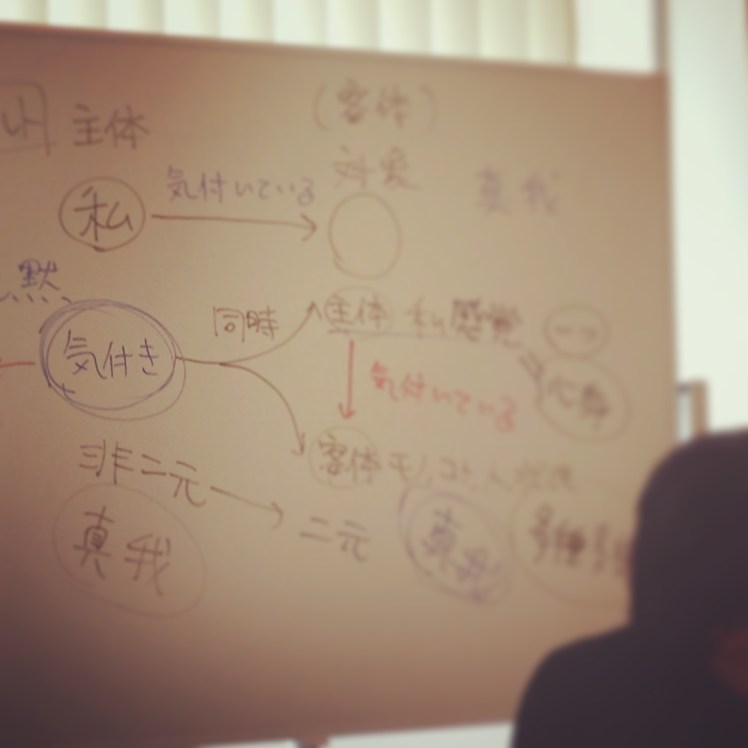 主体
(客体)
対象
真我
私
気付いている
黙
気付き
同時
主体 私感覚
気付いている
心身
客体 モノ、コト、人
非二元
二元
真我
真我